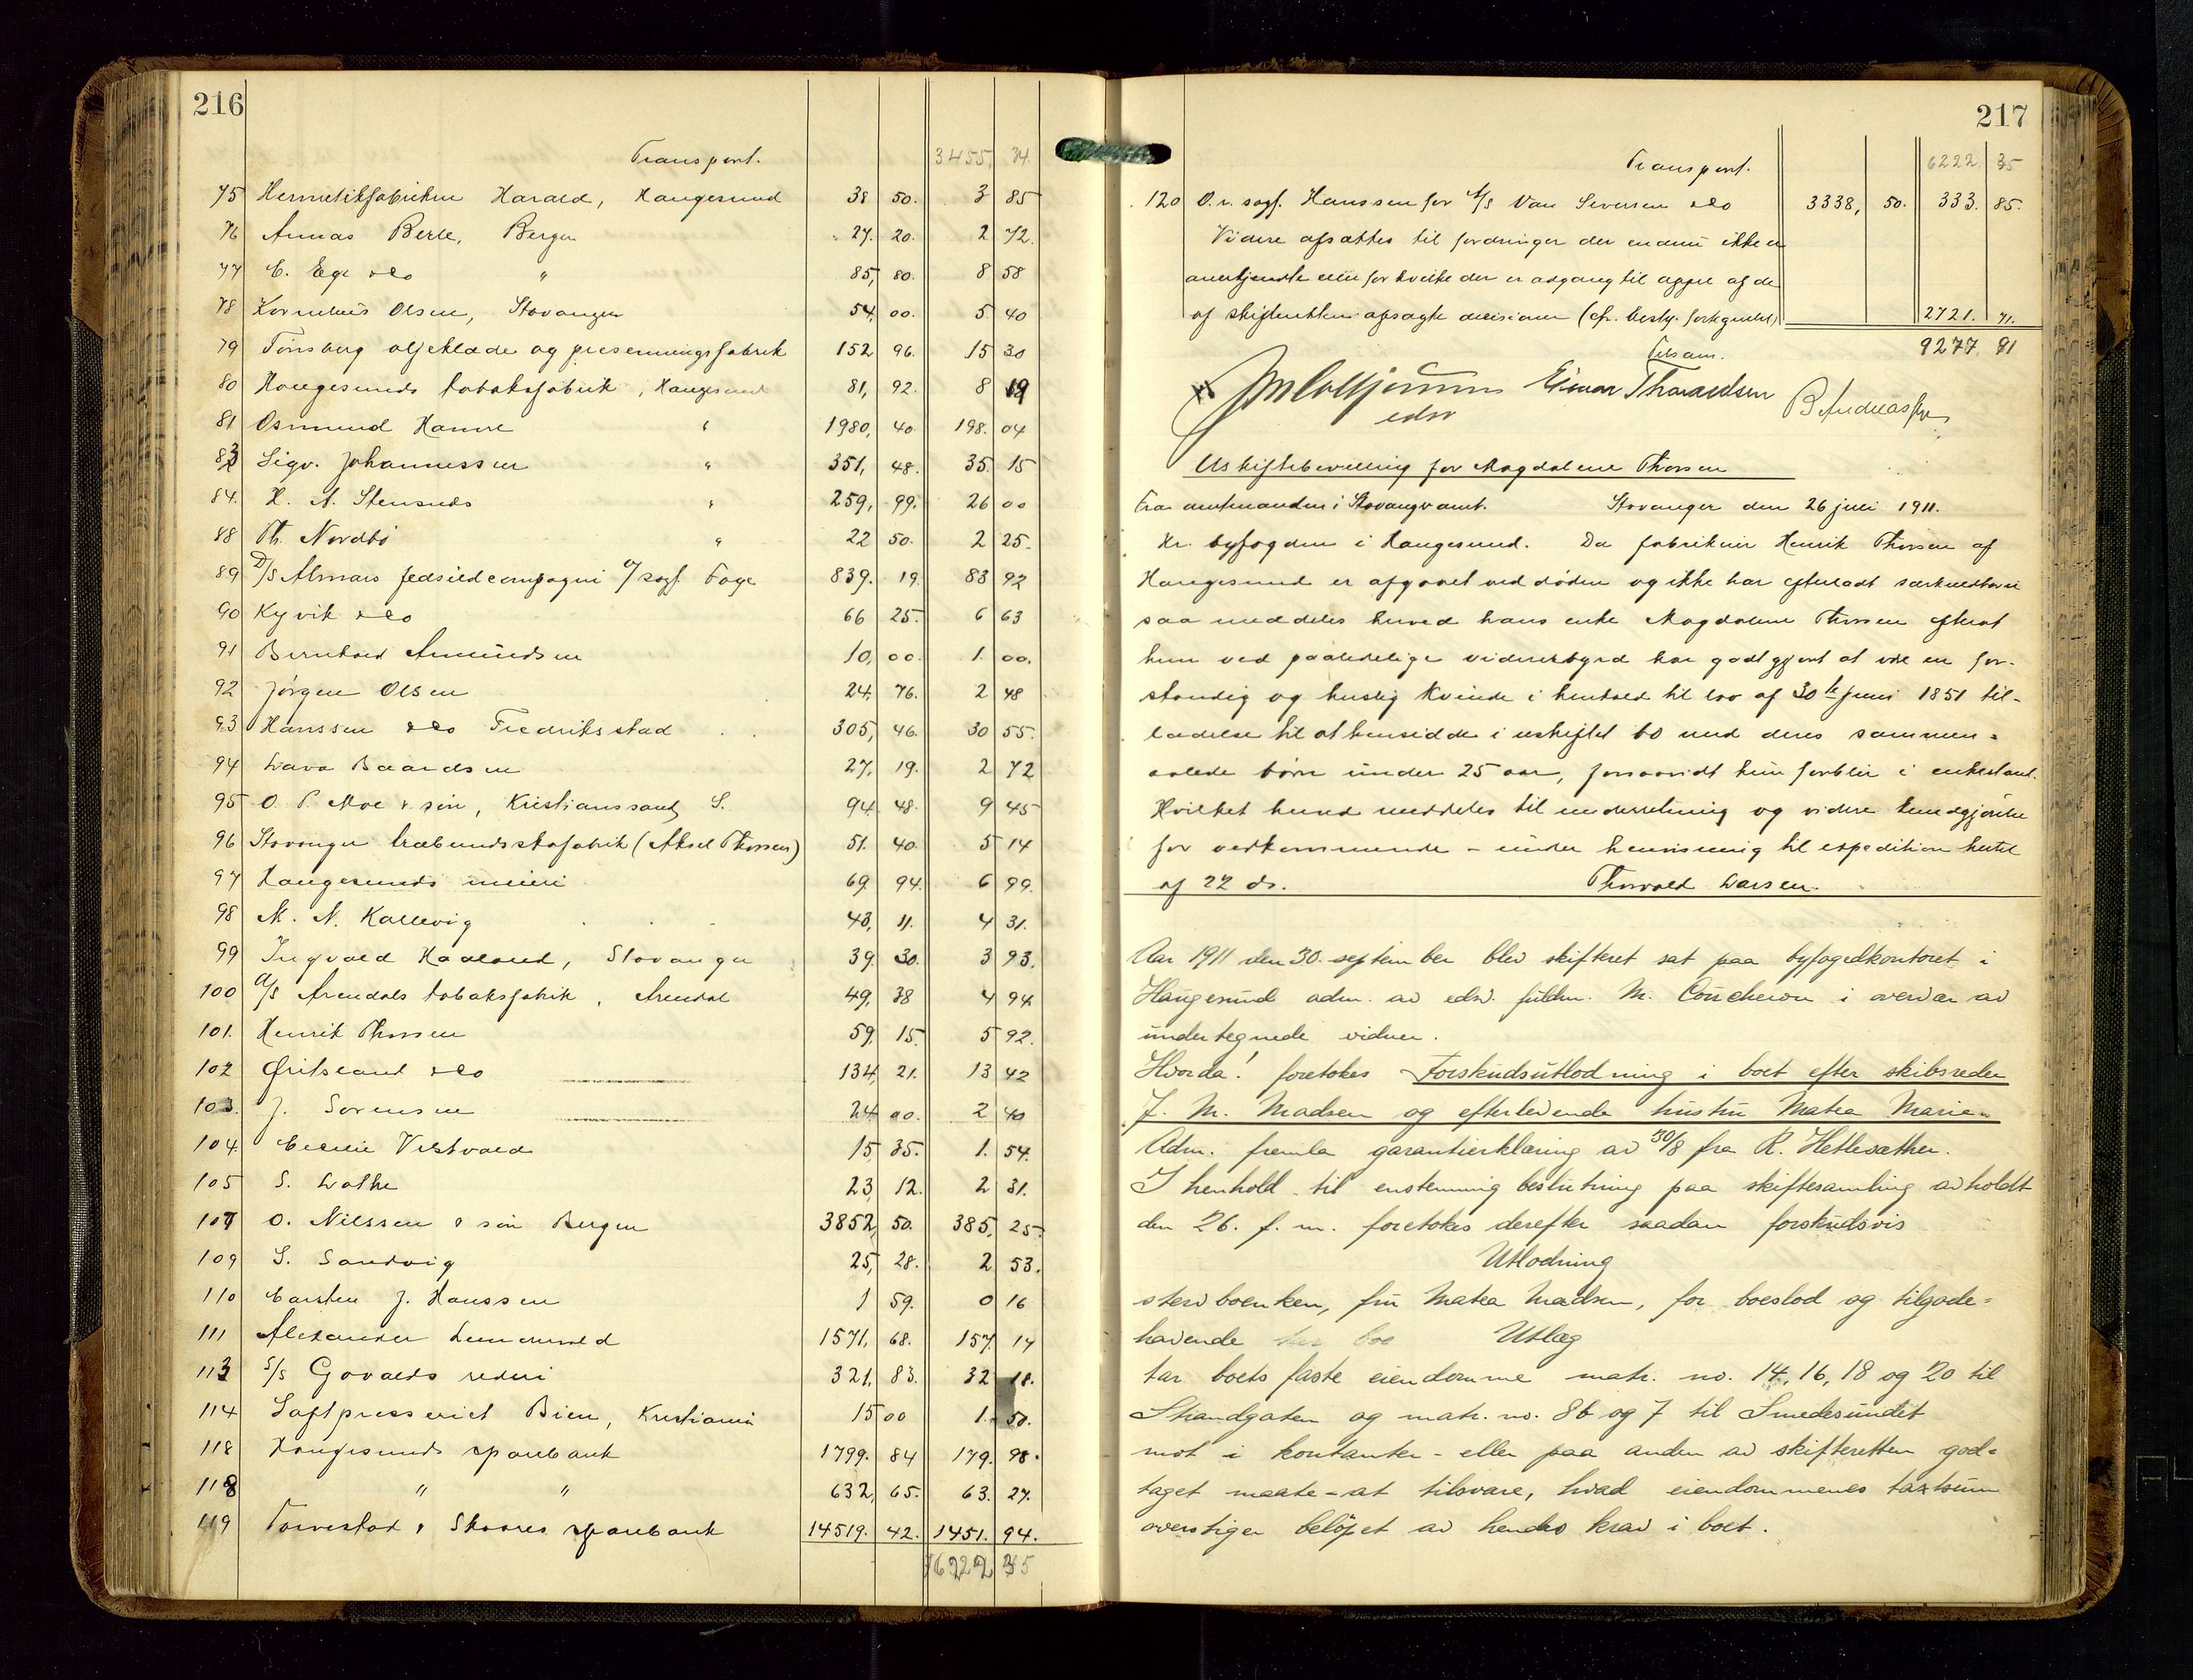 216
Transport. 3455, 34.
75 Hermetikfabriken Harald, Haugesund 38 50. 3 85
76 Annas Berle, Bergen 27. 20. 2 72.
77 C. Ege & Co " 85, 80. 8 58
78 Kornelius Olsen, Stavanger 54, 00. 5. 40
79 Tønsberg oljeklæde og presenningsfabrik 152 96. 15 30
80 Haugesunds tobaksfabrik, Haugesund 81, 92. 8 19
81 Osmund Hamre " 1980, 40. 198. 04
83 Sigv. Johannessen " 351, 48. 35. 15
84. H. A. Stensnes " 259, 99. 26 00
88 Th. Nordbö " 22 50. 2 25.
89 D/S Almars fedsildcompagni v/ sagf. Foge 839. 19. 83 92
90 Kyvik & Co 66 25. 6 63
91 Bernhard Amundsen 10, 00. 1. 00.
92 Jørgen Olsen 24, 76. 2 48
93 Hanssen & Co Fredriksstad 305, 46. 30 55.
94 Lava Baardsen 27, 19. 2 72
95 O. P. Moe & søn, Kristianssand S. 94. 48. 9 45
96 Stavanger træbundsskofabrik (Aksel Thorsen) 51. 40. 5 14
97 Haugesunds meieri 69. 94. 6 99.
98 M. N. Kallevig 43, 11. 4 31.
99 Ingvald Haaland, Stavanger 39. 30. 3 93.
100 A/S Arendals tobaksfabrik, Arendal 49, 38 4 94
101. Henrik Thorsen 59, 15. 5 92.
102 Gritsland & Co 134, 21. 13 42
103. J. Sørensen 24 00. 2 40
104. Cecilie Vestvold 15, 35. 1. 54.
105 S. Lothe 23, 12. 2 31.
107 O. Nilssen & søn Bergen 3852, 50. 385, 25.
109 S. Sandvig 25, 28. 2 53.
110 Carsten J. Hanssen 1 59. 0 16
111 Alexander Lemenwold 1571, 68. 157. 17
113 S/S Govalds rederi 321, 83. 32 18.
114 Saftpresseriet Bien, Kristiania 15 00 1. 50.
118 Haugesunds sparebank 1799. 84 179. 98.
118 " " 632, 65. 63. 27.
119 Torvestad & Skaares sparebank 14519. 42. 1451. 94.
6222 35
217
Transport. 6222. 35
120 O.r. sagf. Hanssen for A/S Van Severen & Co 3338, 50. 333. 85.
Videre afsættes til fordringer der endnu ikke er
anerkjendte eller for hvilke der er adgang til appel af de
af skifteretten afsagte decisioner (cfr. besty. fortegnelse) 2721. 71.
Tilsam. 9277. 91
edsv Einar Tharaldsen B. Andreassen
Uskiftebevilling for Magdalene Thorsen
Fra amtmanden i Stavanger amt. Stavanger den 26 juli 1911.
Hr. byfogden i Haugesund. Da fabrikeier Henrik Thorsen af
Haugesund er afgaaet ved døden og ikke har efterladt særkuldsbarn
saa meddeles herved hans enke Magdalene Thorsen efterat
hun ved paalidelige vidnesbyrd har godtgjort at være en for-
standig og huslig kvinde i henhold til lov af 30te juni 1851 til-
ladelse til at hensidde i uskiftet bo med deres sammen-
avlede børn under 25 aar, forsaavidt hun forblir i enkestand.
Hvilket herved meddeles til underretning og videre kundgjørelse
for vedkommende – under henvisning til expedition hertil
af 22 ds. Thorvald Larsen.
Aar 1911 den 30. september blev skifteret sat paa byfogedkontoret i
Haugesund adm. av edsv. fuldm. M. Coucheron i overvær av
undertegnede vidner.
Hvorda! foretokes Forskudsutlodning i boet efter skibsreder
J. M. Madsen og efterlevende hustru Matea Marie.
Adm. fremla garantierklæring av 30/8 fra R. Hetlesæther.
I henhold til enstemmig beslutning paa skiftesamling avholdt
den 26. f. m. foretokes derefter saadan forskudsvis
Utlodning
stervboenken, fru Matea Madsen, for boeslod og tilgode-
havende her boe Utlæg
tar boets faste eiendomme matr. no. 14, 16, 18 og 20 til
Strandgaten og matr. no. 86 og 7 til Smedesundet
mot i kontanter – eller paa anden av skifteretten god-
taget maate – at tilsvare, hvad eiendommenes taxtsum
overstiger beløpet av hendes krav i boet.